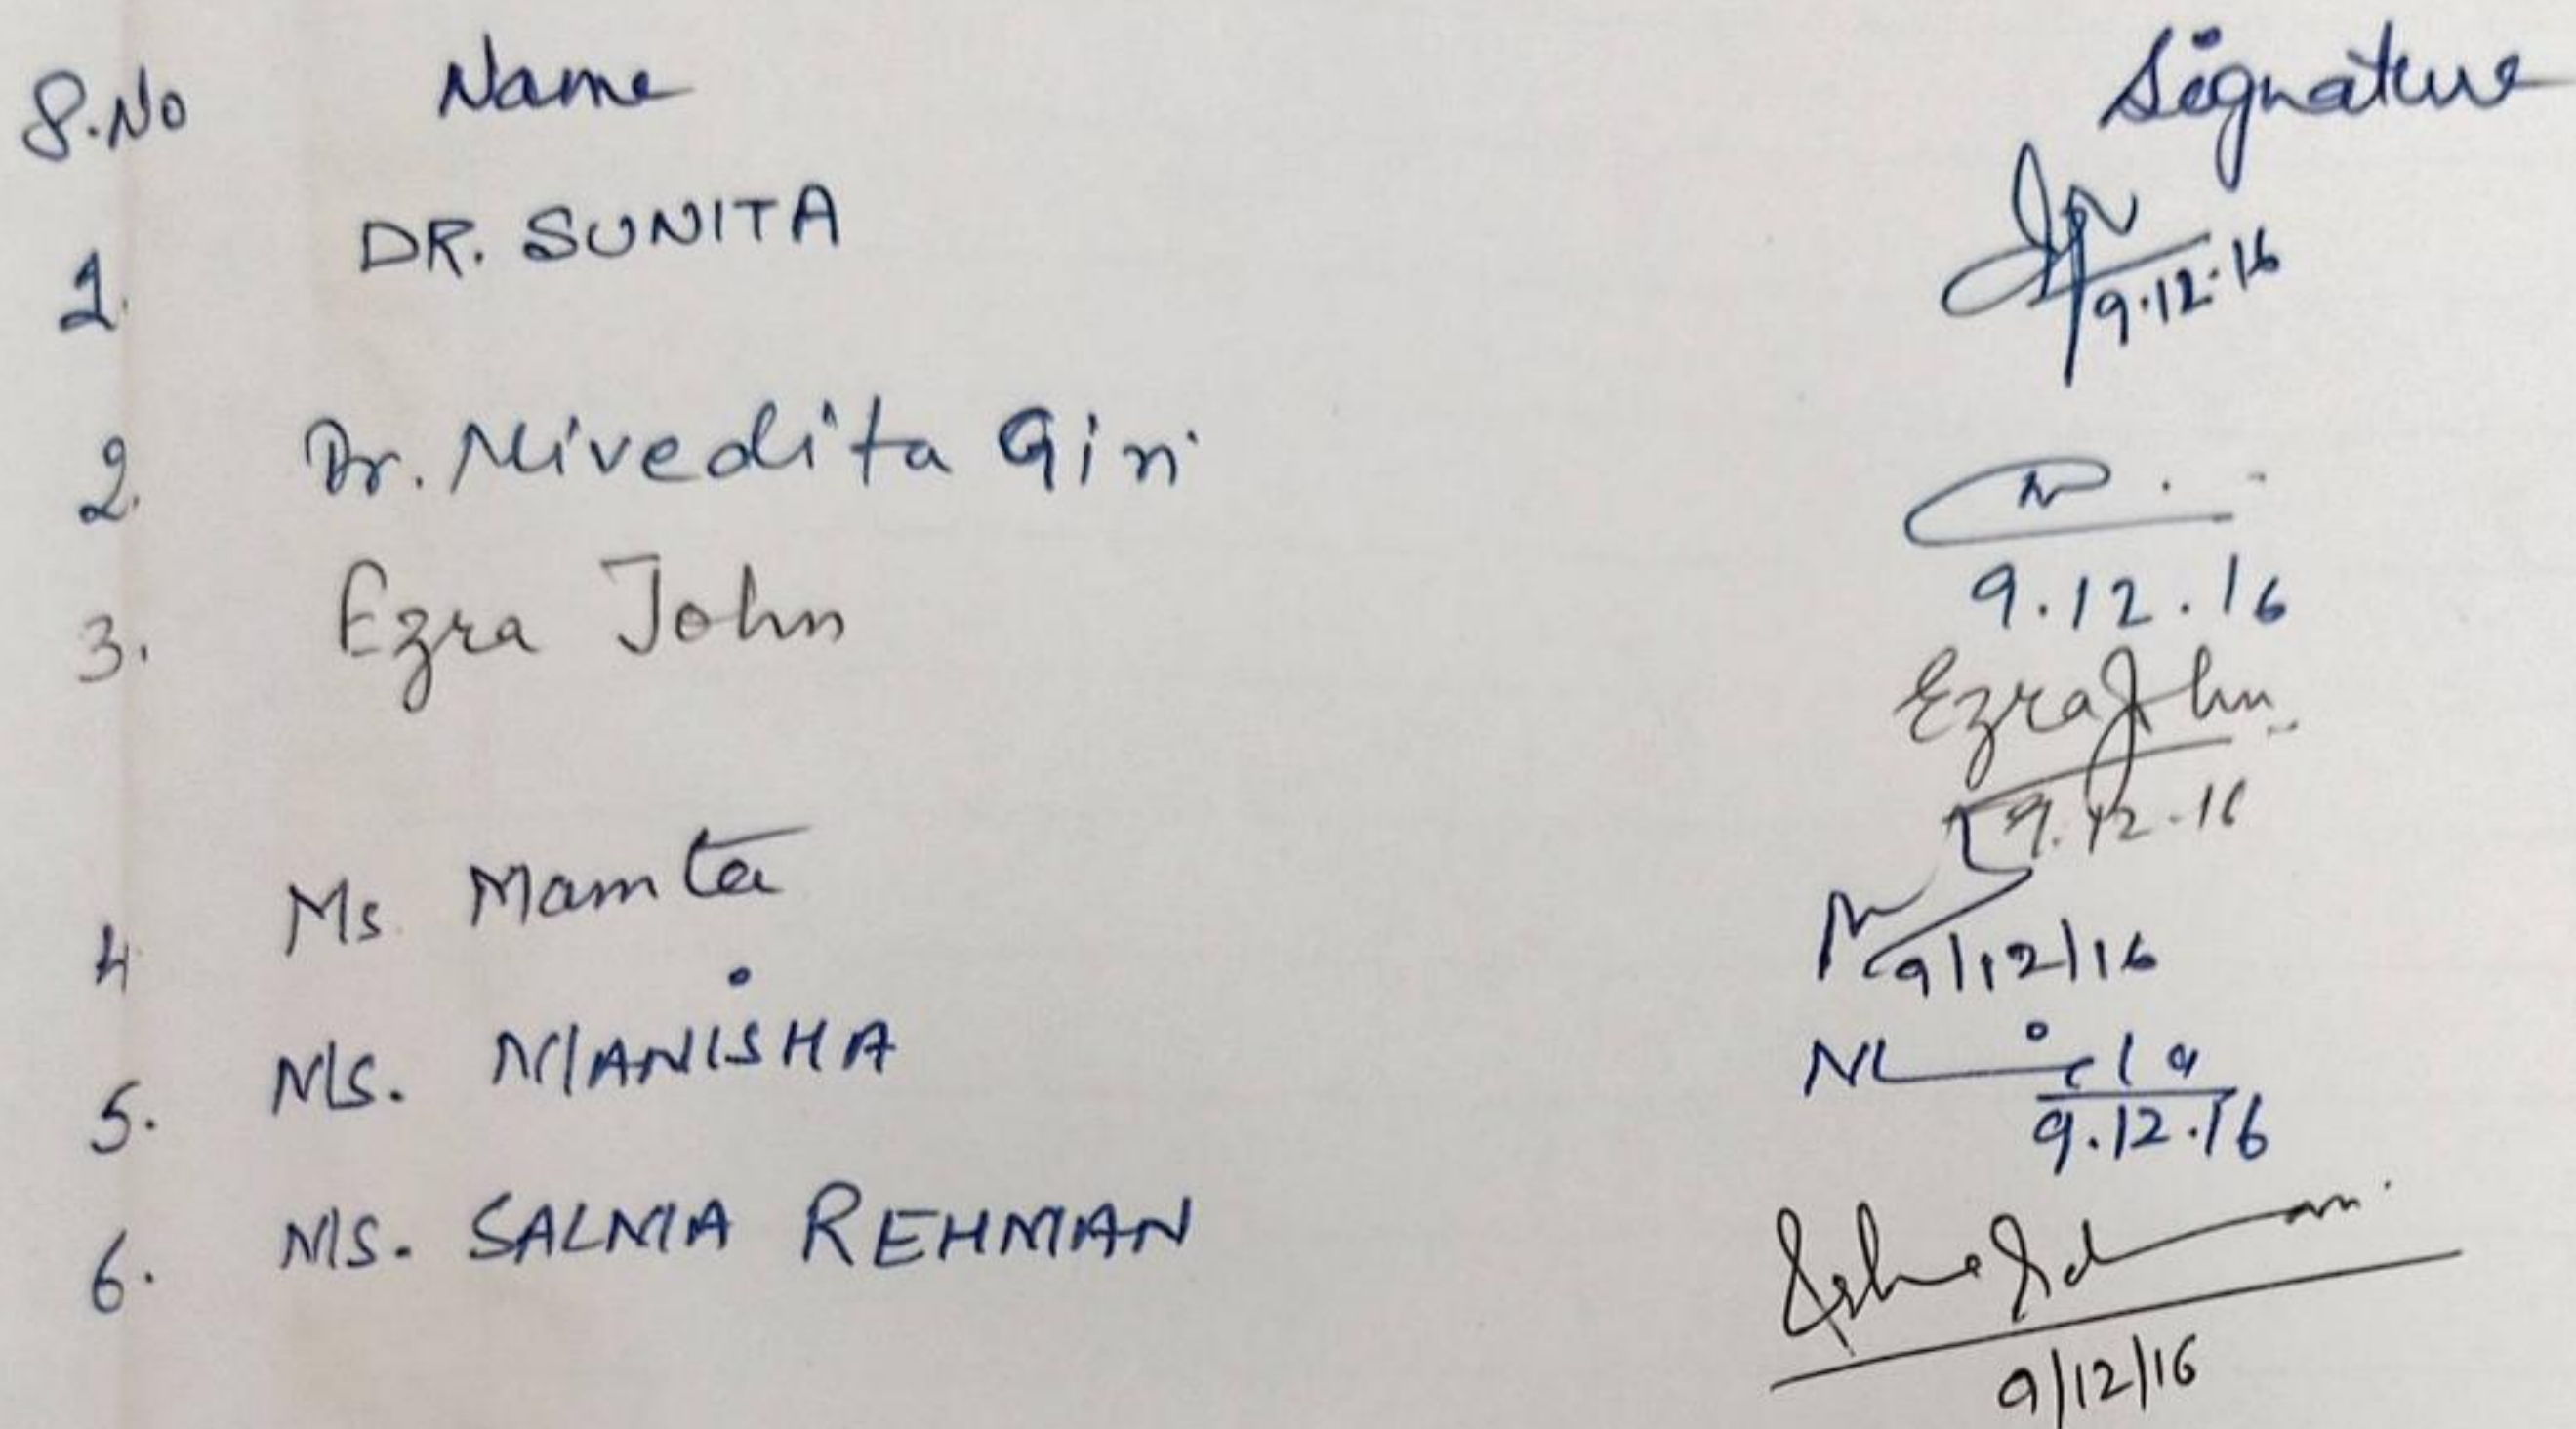 S.No Name Signature
1. DR. SUNITA
9.12.16
2. Dr. Nivedita Giri
9.12.16
3. Ezra John Ezra John
9.12.16
4 Ms. Mamta
9/12/16
5. MS. MANISHA
9.12.16
6. MS. SALMA REHMAN
9/12/16